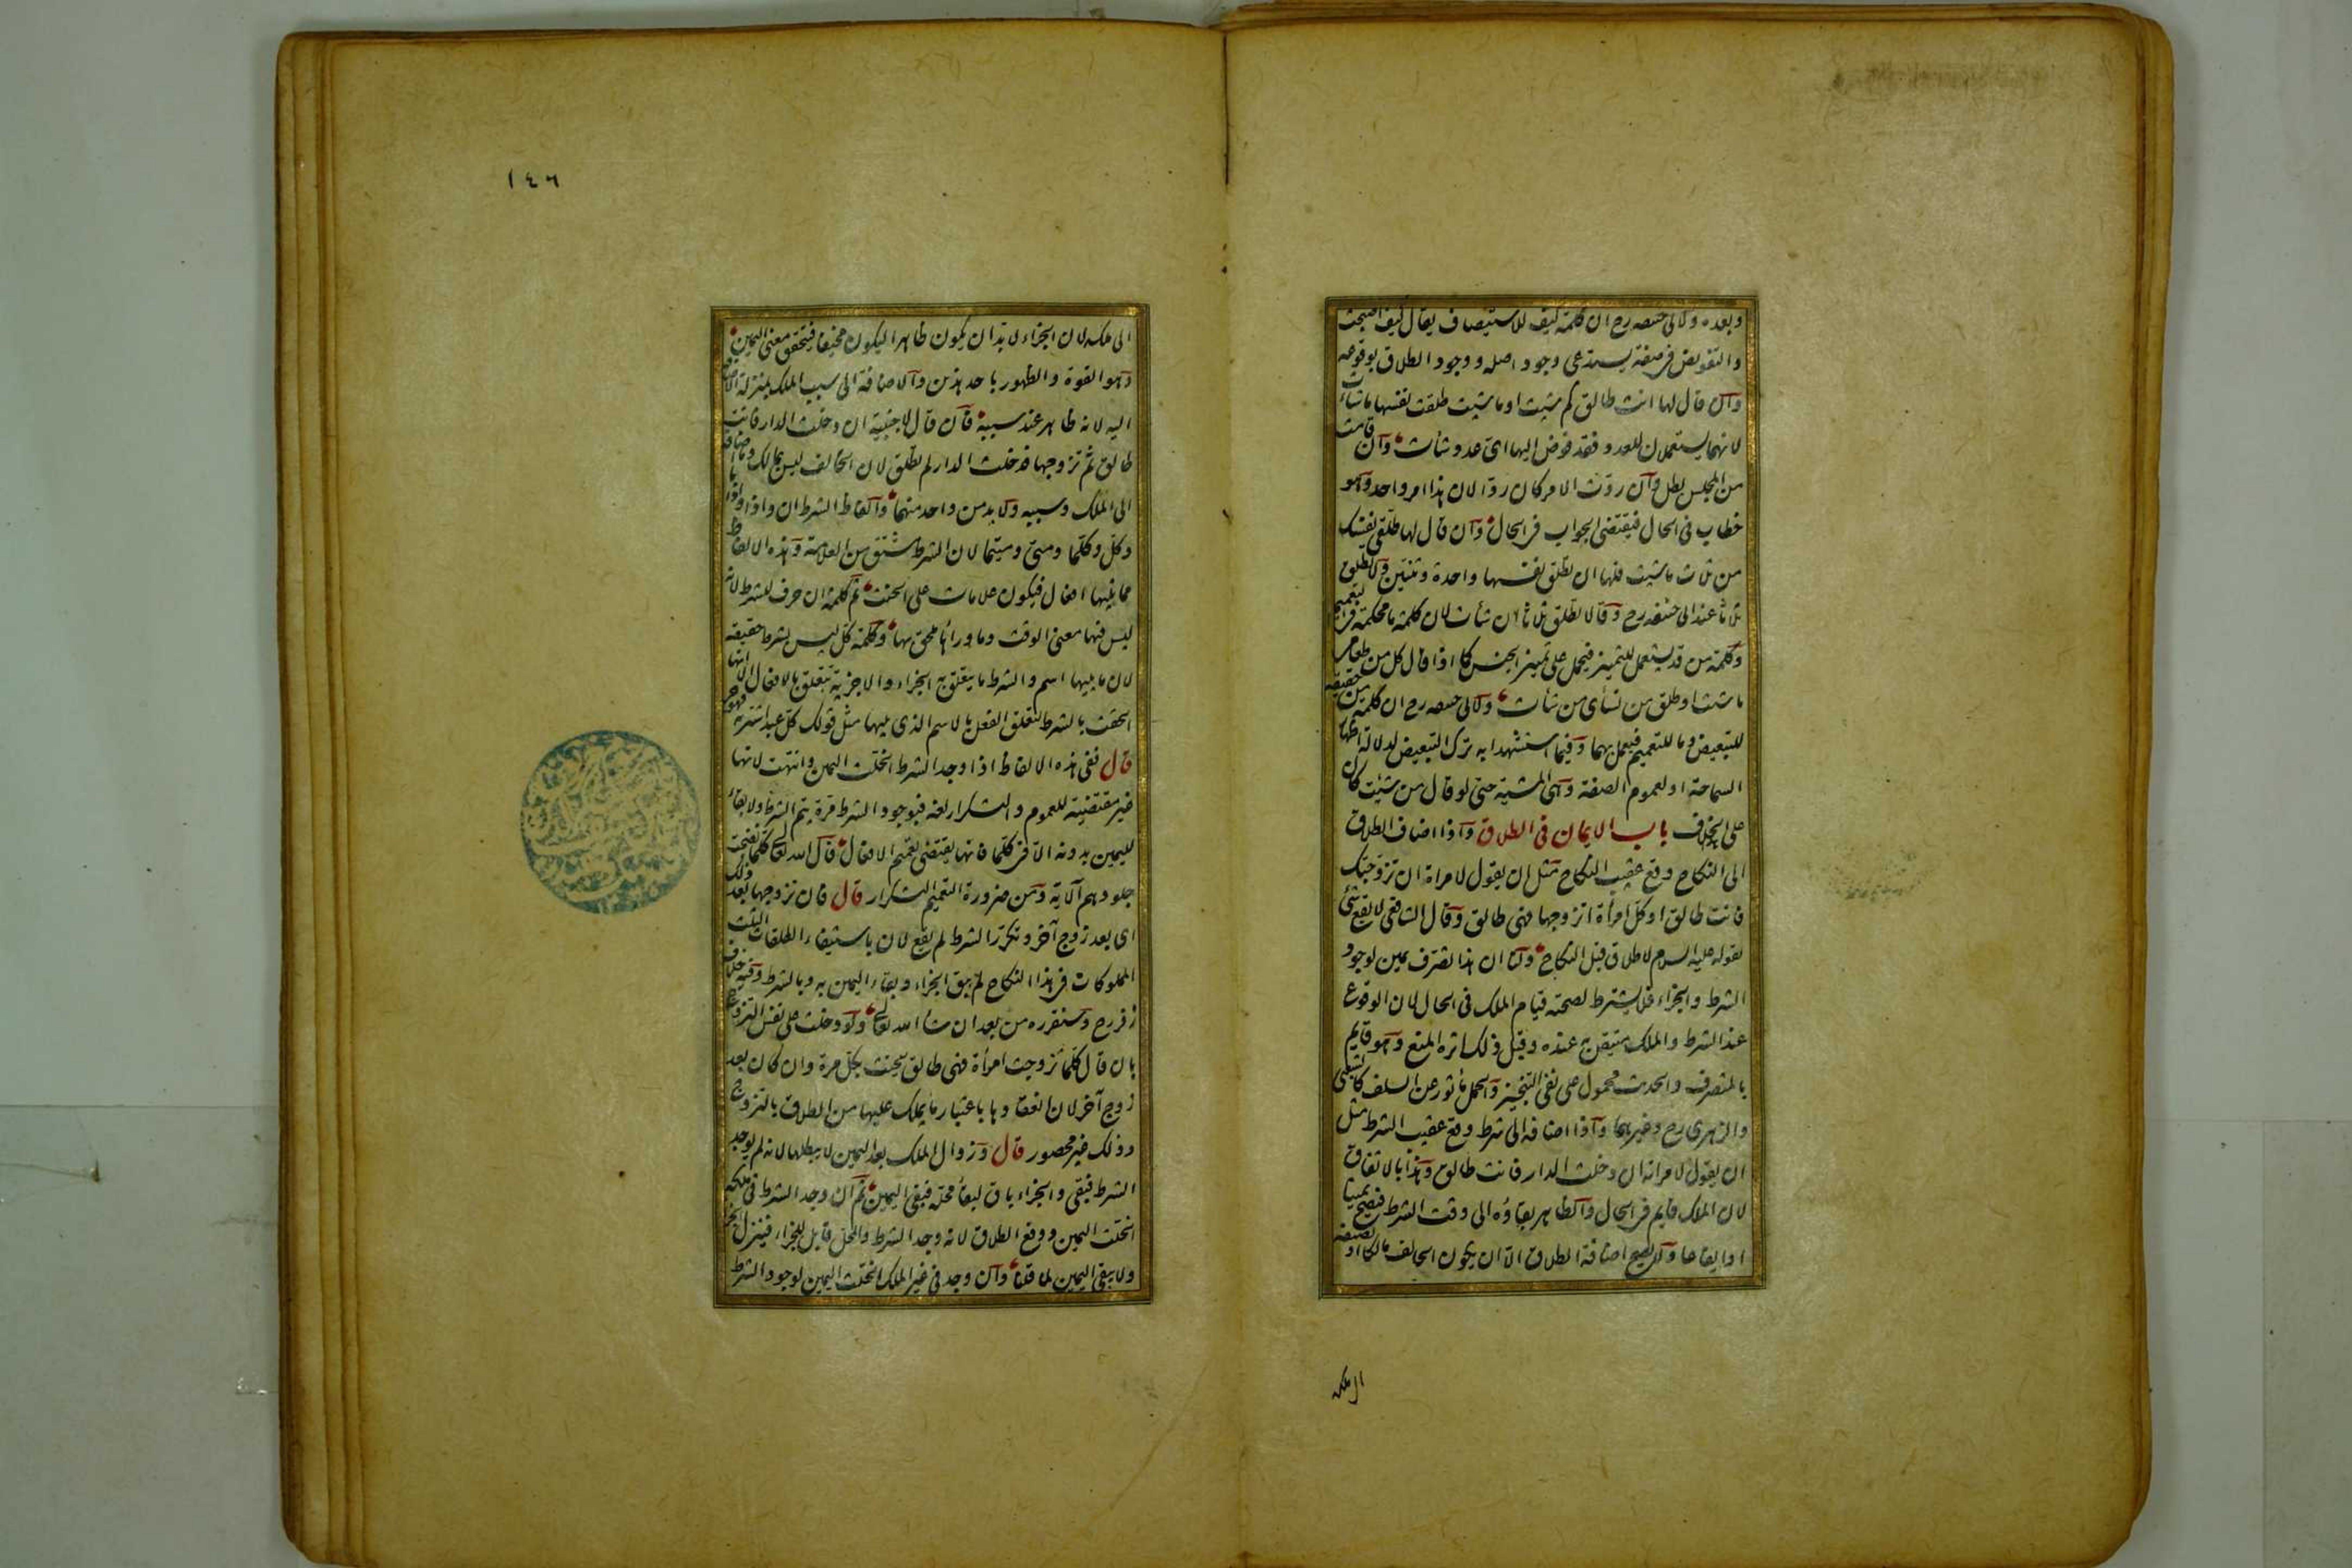 وبعده ولابی حنیفه رح ان كلمة كيف للاستيصاف يقال كيف اصبحت
والتفويض فى صفته يستدعى وجود اصله ووجود الطلاق بوقوعه
وان قال لها انت طالق كم شيت او ما شيت طلقت نفسها ما شأت
لانهما يستعملان للعدد فقد فوض اليها اى عدد شأت وان قامت
من المجلس بطل وان ردت الامر كان ردا لان هذا امر واحد وهو
خطاب فى الحال فيقتضى الجواب فى الحال وان قال لها طلقى نفسك
من ثلاث ما شيت فلها ان تطلق نفسها واحدة وثنتين ولا تطلق
ثلاثا عند ابى حنيفه رح وقالا تطلق ثلاثا ان شأت لان كلمة ما محكمة فى التعميم
وكلمة من قد يستعمل للتمييز فيحمل على تمييز الجنس كما اذا قال كل من طعامى
ما شئت او طلق من نسأى من شأت ولابى حنيفه رح ان كلمة من حقيقة
للتبعيض وما للتعميم فيعمل بهما وفيما استشهدا به ترك التبعيض لدلالة اظهار
السماحة او لعموم الصفة وهى المشية حتى لو قال من شيت كان
على الخلاف باب الايمان فى الطلاق واذا اضاف الطلاق
الى النكاح وقع عقيب النكاح مثل ان يقول لامراة ان تزوجتك
فانت طالق او كل امرأة اتزوجها فهى طالق وقال الشافعى لا يقع شئ
لقوله عليه السلام لا طلاق قبل النكاح ولنا ان هذا تصرف يمين لوجود
الشرط والجزاء فلا يشترط لصحته قيام الملك فى الحال لان الوقوع
عند الشرط والملك متيقن به عنده وقبل ذلك اثره المنع وهو قايم
بالمتصرف والحديث محمول على نفى التنجيز والحمل مأثور عن السلف كالشعبى
والزهرى رح وغيرهما واذا اضافه الى شرط وقع عقيب الشرط مثل
ان يقول لامراته ان دخلت الدار فانت طالق وهذا بالاتفاق
لان الملك قايم فى الحال والظاهر بقاؤه الى وقت الشرط فيصح يمينا
او ايقاعا ولا يصح اضافة الطلاق الا ان يكون الحالف مالكا او يضيفه
الى ملكه
١٤٦
الى ملكه لان الجزاء لا بد ان يكون ظاهرا ليكون مخيفا فيتحقق معنى اليمين
وهو القوة والظهور باحد هذين والاضافة الى سبب الملك بمنزلة الاضافة
اليه لانه ظاهر عند سببه فان قال لاجنبية ان دخلت الدار فانت
طالق ثم تزوجها فدخلت الدار لم تطلق لان الحالف ليس بمالك وما اضافه
الى الملك وسببه ولا بد من واحد منهما والفاظ الشرط ان واذا واذا ما
وكل وكلما ومتى ومتيما لان الشرط مشتق من العلامة وهذه الالفاظ
مما يليها افعال فيكون علامات على الحنث ثم كلمة ان حرف للشرط لانه
ليس فيها معنى الوقت وما ورائها ملحق بها وكلمة كل ليس بشرط حقيقة
لان ما يليها اسم والشرط ما يتعلق به الجزاء والاجزية تتعلق بالافعال الا انها
الحقت بالشرط لتعلق الفعل بالاسم الذى يليها مثل قولك كل عبد اشتريته فهو حر
قال ففى هذه الالفاظ اذا وجد الشرط انحلت اليمين وانتهت لانها
غير مقتضية للعموم والتكرار لغة فبوجود الشرط مرة يتم الشرط ولا بقاء
لليمين بدونه الا فى كلما فانها يقتضى تعميم الافعال قال الله تعالى كلما نضجت
جلودهم الآية ومن ضرورة التعميم التكرار قال فان تزوجها بعد ذلك
اى بعد زوج آخر وتكرر الشرط لم يقع لان باستيفاء الطلقات الثلث
المملوكات فى هذا النكاح لم يبق الجزاء وبقاء اليمين به وبالشرط وفيه خلاف
زفر رح وسنقرره من بعد ان شأ الله تعالى ولو دخلت على نفس التزوج
بان قال كلما تزوجت امرأة فهى طالق يحنث بكل مرة وان كان بعد
زوج آخر لان انعقادها باعتبار ما يملك عليها من الطلاق بالتزوج
وذلك غير محصور قال وزوال الملك بعد اليمين لا يبطلها لانه لم يوجد
الشرط فبقى والجزاء باق لبقأ محله فبقى اليمين ثم ان وجد الشرط فى ملكه
انحلت اليمين ووقع الطلاق لانه وجد الشرط والمحل قابل للجزاء فينزل الجزاء
ولا يبقى اليمين لما قلنا وان وجد فى غير الملك انحلت اليمين لوجود الشرط